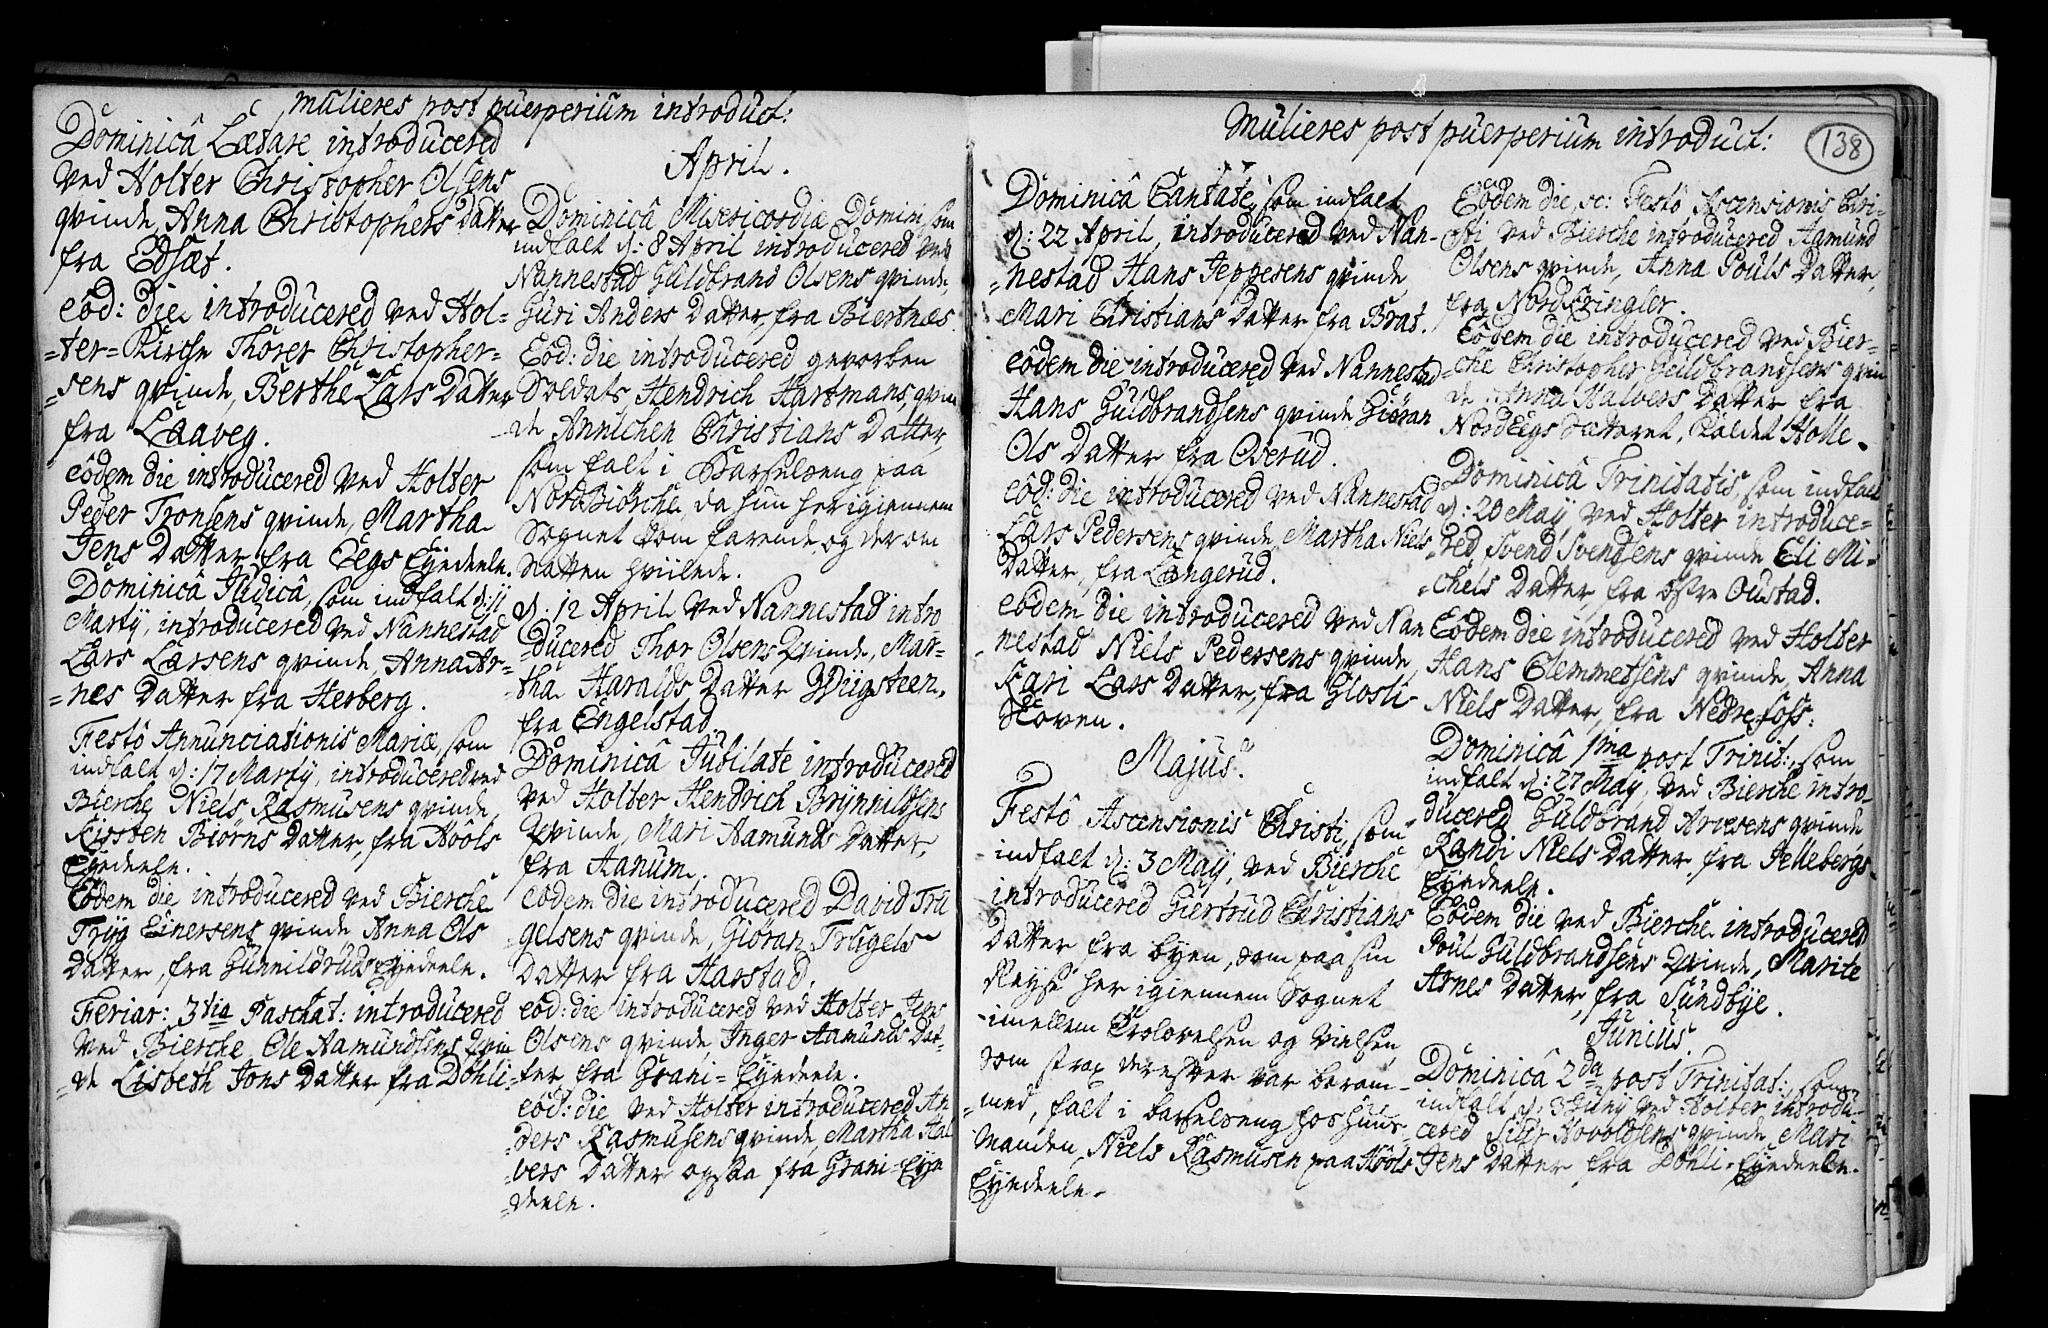 Mulieres post puerperium introduct:
Dominicâ Lætare introducered
ved Holter Christopher Olsens
qvinde, Anna Christophers Datter
fra Edsæt.
eod: die introducered ved Hol-
=ter=Kirche Thorer Christopher=
=sens qvinde, Berthe Lars Datter
fra Laaveg.
eôdem die introducered ved Holter
Peder Tronsens qvinde, Martha
Jens Datter fra Eegs Eyedeele.
Dominicâ Judicâ, som indfalt d: 11
Martÿ, introducered ved Nannestad
Lars Larsens qvinde, Anna Ar-
=nes Datter fra Herberg.
Festô Annunciationis Mariæ, som
indfalt d: 17 Martÿ, introducered ved
Bierche Niels Rasmusens qvinde
Kirsten Biörns Datter, fra Hools
Eyedeele.
Eôdem die introducered ved Bierche
Tryg Einersens qvinde Anna Ols
Datter, fra Gunnildruds Eyedeele.
Feriar: 3tia Paschat: introducered
ved Bierche Ole Aamundsens Qvin
=de Lisbeth Jons Datter fra Döhli=
April.
Dominicâ Misericordiæ Domini, som
indfalt d: 8 April introducered ved
Nannestad Guldbrand Olsens qvinde,
Guri Anders Datter, fra Biertnæs
Eod: die introducered gevorben
Soldats Hendrich Hartmans, qvin
=de Annichen Christians Datter,
som falt i Barselseng paa
Nord Biörche, da hun her igiennem
Sognet kom farende og der om
Natten hviilede.
d: 12 April ved Nannestad intro
=ducered Thor Olsens Qvinde, Mar=
=tha Haralds Datter Wiigsteen,
fra Engelstad.
Dominicâ Jubilate introducered
ved Holter Hendrich Brynnildsens
Qvinde, Mari Aamunds Datter,
fra Aanum.
eodem die introducered David Tru
=gelsens qvinde, Giöran Trugels
Datter fra Harstad.
eod: die introducered ved Holter Jens
Olsens qvinde, Inger Aamunds Dat=
=ter fra Grani=Eyedeele.
eod: die ved Holter introducered An
=ders Rasmusens qvinde, Martha Hal
=vers Datter ogsaa fra Grani=Eye
=deele.
Mulieres post puerperium introduct:
138
Dominicâ Cantate, som indfalt
d: 22 April, introducered ved Nan-
=nestad Hans Jeppesens qvinde
Mari Christians Datter fra Brat.
eôdem die introducered ved Nannestad
Hans Guldbrandsens qvinde Giöran
Ols Datter fra Oserud.
eôd: die introducered ved Nannestad
Lars Pedersens qvinde, Martha Niels
Datter, fra Langerud.
eôdem die introducered ved Nan
=nestad Niels Pedersens qvinde,
Kari Lars Datter, fra Glosli-
skoven.
Majus.
Festô Ascensionis Christi, som
indfalt d: 3 Maÿ, ved Bierche
introducered Giertrud Christians
Datter fra byen, som paa sin
Reyse her igiennem Sognet
imellem Trolovelsen og vielsen,
som strax derefter var beram-
=med, falt i barselseng hos huus-
manden, Niels Rasmusen paa Hools
Eyedeele.
Eôdem die, sc: Festô Ascensionis Chri-
=sti ved Bierche introducered Aamund
Olsens qvinde, Anna Pouls Datter,
fra Nord Eringler.
Eôdem die introducered ved Bier=
=che Christopher Guldbrandsens qvin
de, Anna Halvers Datter fra
Nord Eegs sætteret, kaldet Holle.
Dominicâ Trinitatis, som indfalt
d: 20 Maÿ, ved Holter introduce=
=red Svend Svendsens qvinde Eli Mi=
=chels Datter, fra östre Oustad.
Eôdem die introducered ved Holter
Hans Clemmetsens qvinde, Anna
Niels Datter, fra Nedre foss:
Dominicâ 1ma post Trinit:, som
indfalt d: 27 Maÿ, ved Bierche intro-
ducered Guldbrand Arvesens qvinde
Randi Niels Datter, fra Jellebergs
Eyedeele.
Eôdem die ved Bierche introducered
Poul Guldbrandsens Qvinde, Marite
Arnes Datter, fra Sundbye.
Junius.
Dominicâ 2da post Trinitat:, som
indfalt d: 3 Junÿ ved Holter introdu-
=cered Siur Hovoldsens qvinde, Mari
Jens Datter, fra Döhli=Eyedeele.